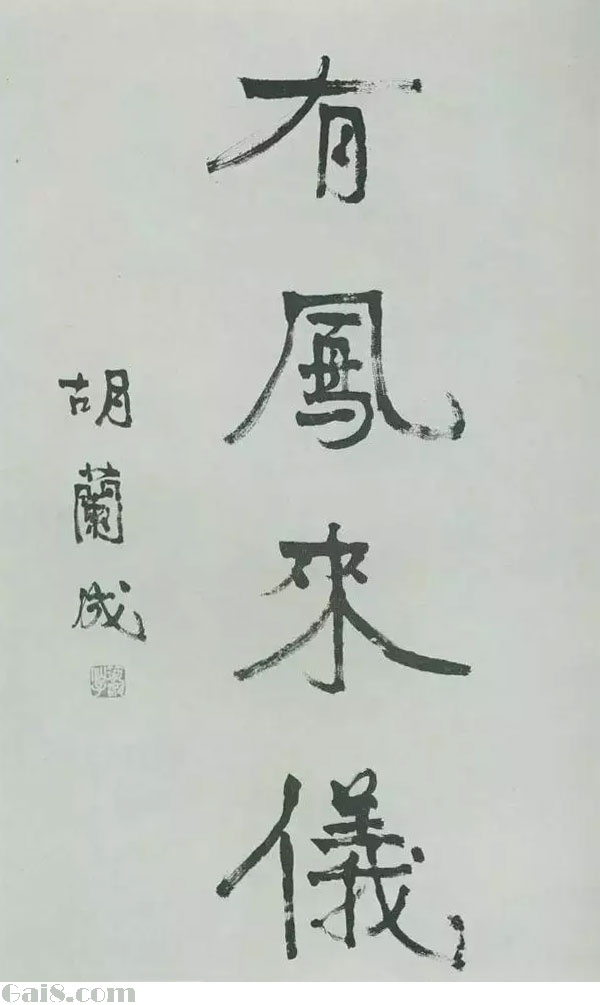 有鳳來儀
胡蘭成
Gai8.com